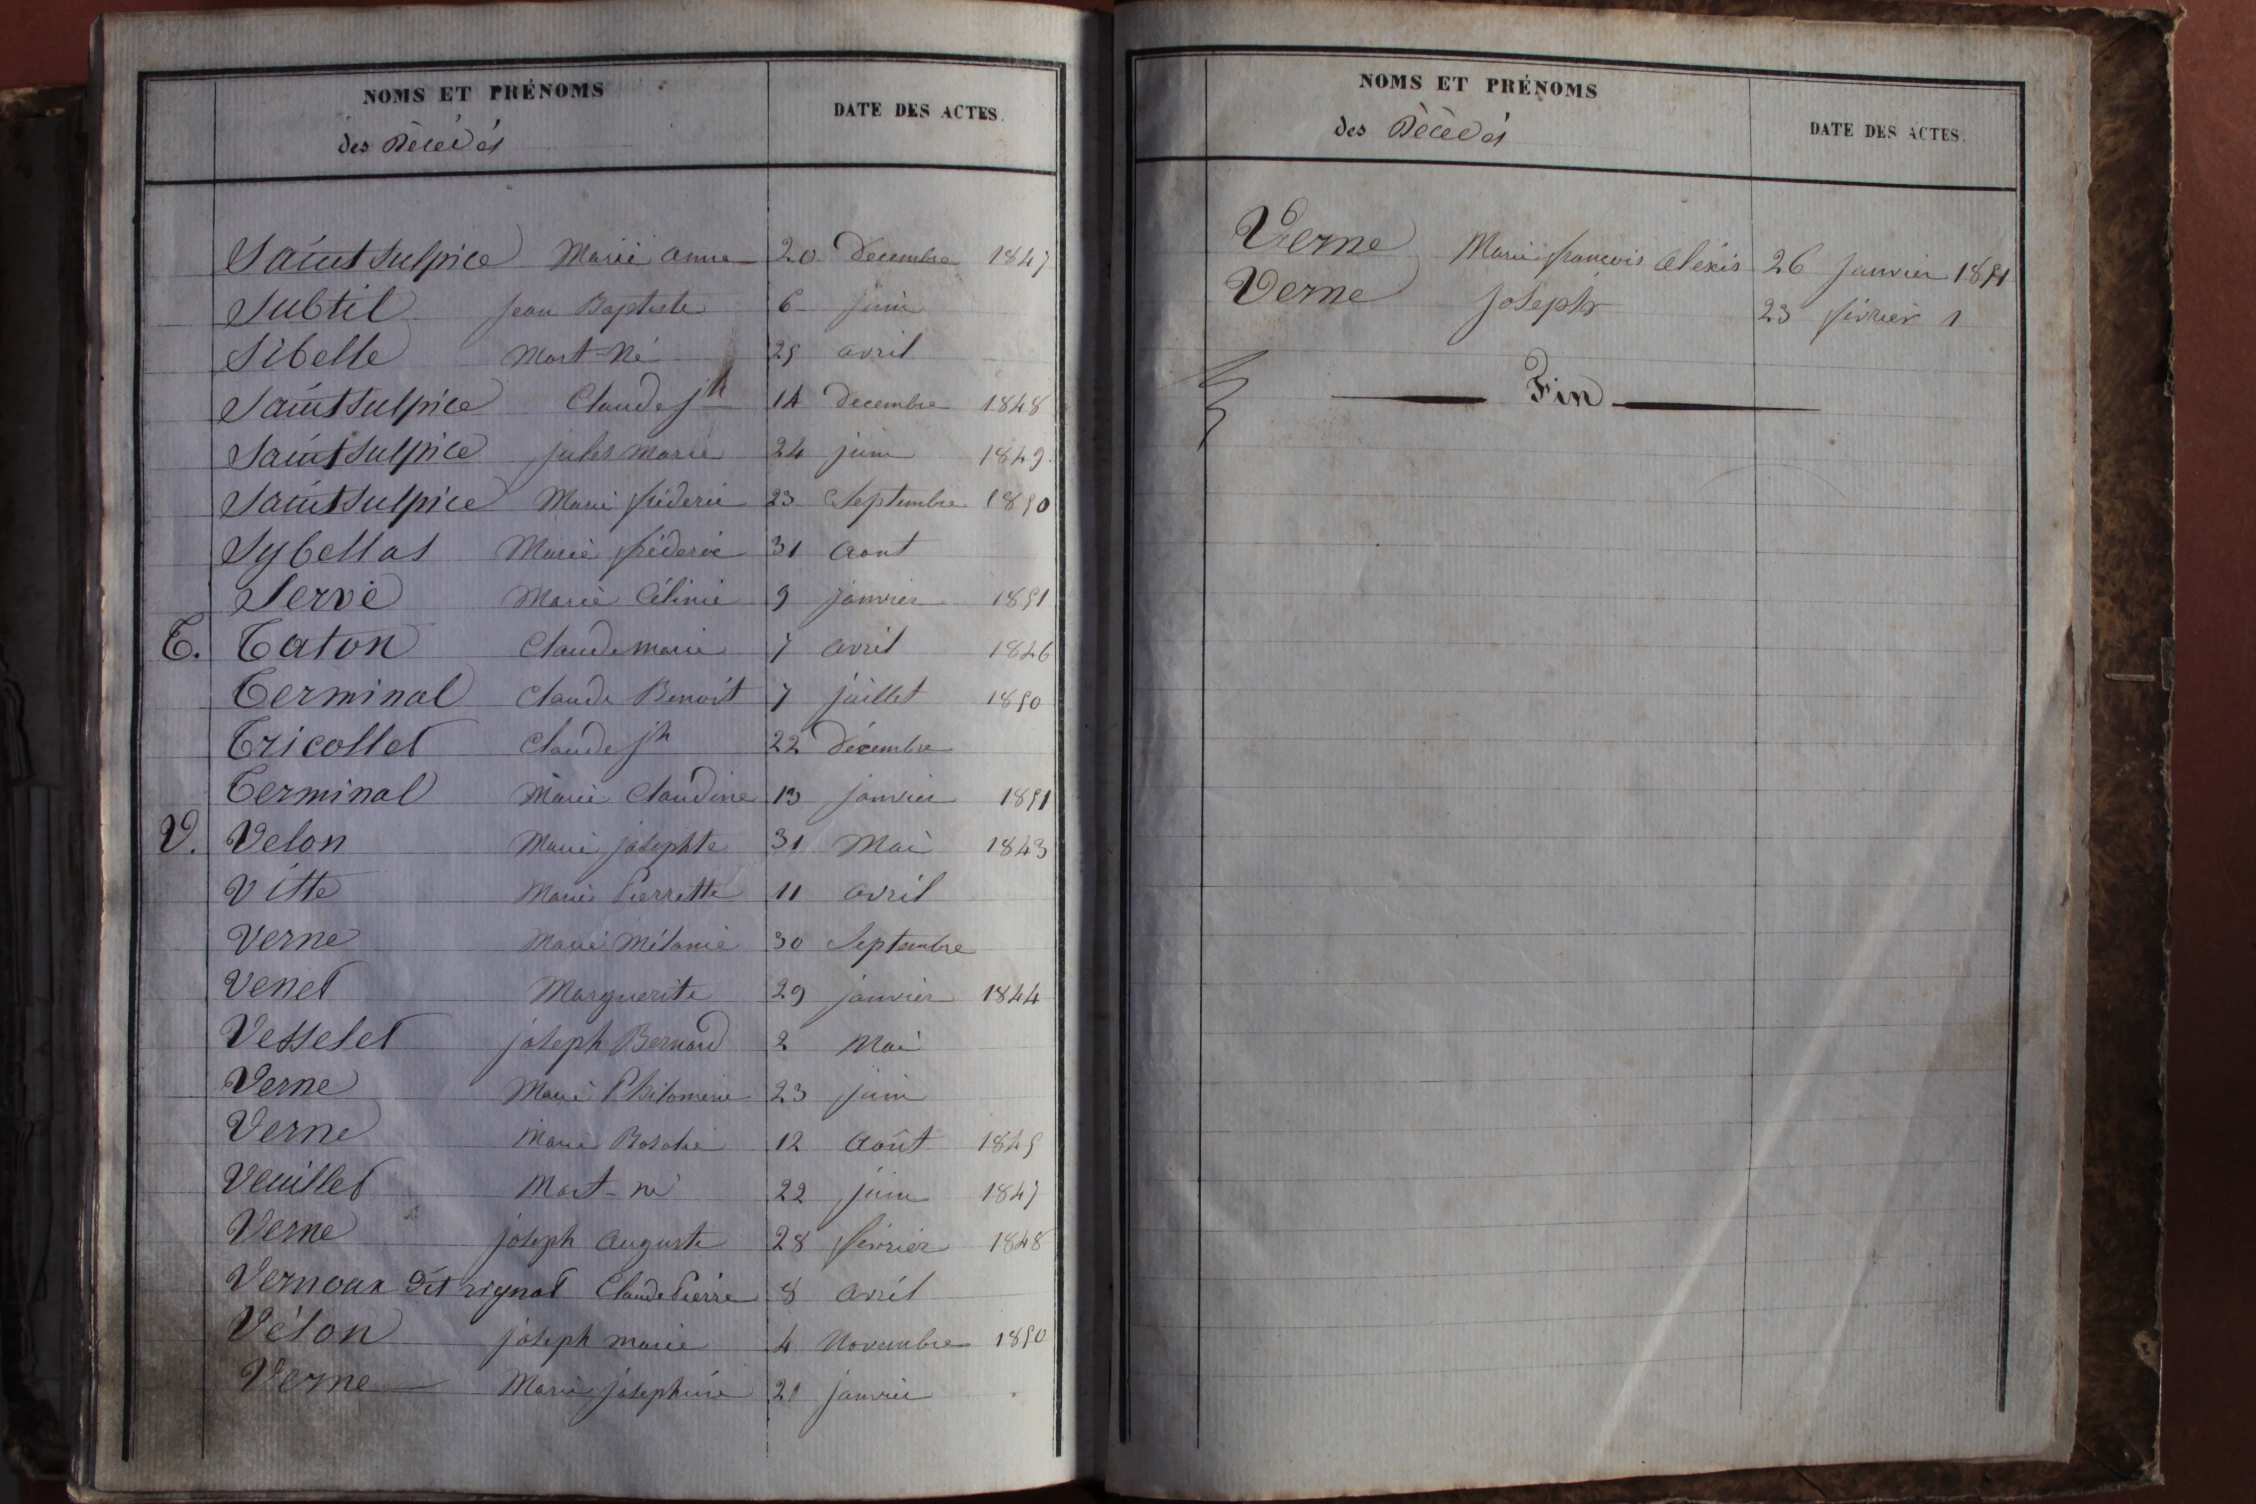 NOMS ET PRÉNOMS
des Décédés
DATE DES ACTES.
Saint Sulpice Marie anne 20 Décembre 1847
Subtil Jean Baptiste 6 juin
Sibelle Mort-Né 25 avril
Saint Sulpice Claude jh 14 Décembre 1848
Saint Sulpice jules marie 24 juin 1849.
Saint Sulpice Marie fréderic 23 Septembre 1850
Sybellas Marie fréderic 31 aout
Servé Marie Célinie 9 janvier 1851
T. Taton Claude marie 7 avril 1846
Terminal Claude Benoit 7 juillet 1850
Tricollet Claude jh 22 Décembre
Terminal Marie Claudine 13 janvier 1851
V. Velon Marie josephte 31 Mai 1843
Vitte Marie Pierrette 11 avril
Verne Marie Mélanie 30 Septembre
Venet Marguerite 29 janvier 1844
Vesselet joseph Bernard 2 Mai
Verne Marie Philomène 23 juin
Verne Marie Rosalie 12 août 1845
Veuillet Mort-né 22 juin 1847
Verne joseph auguste 28 février 1848
Vernoux dit rignat Claude Pierre 8 avril
Vélon joseph marie 4 Novembre 1850
Verne Marie joséphine 21 janvier
NOMS ET PRÉNOMS
des Décédés
DATE DES ACTES.
Verne Marie françois aléxis 26 janvier 1851
Verne joseph 23 février 1
Fin